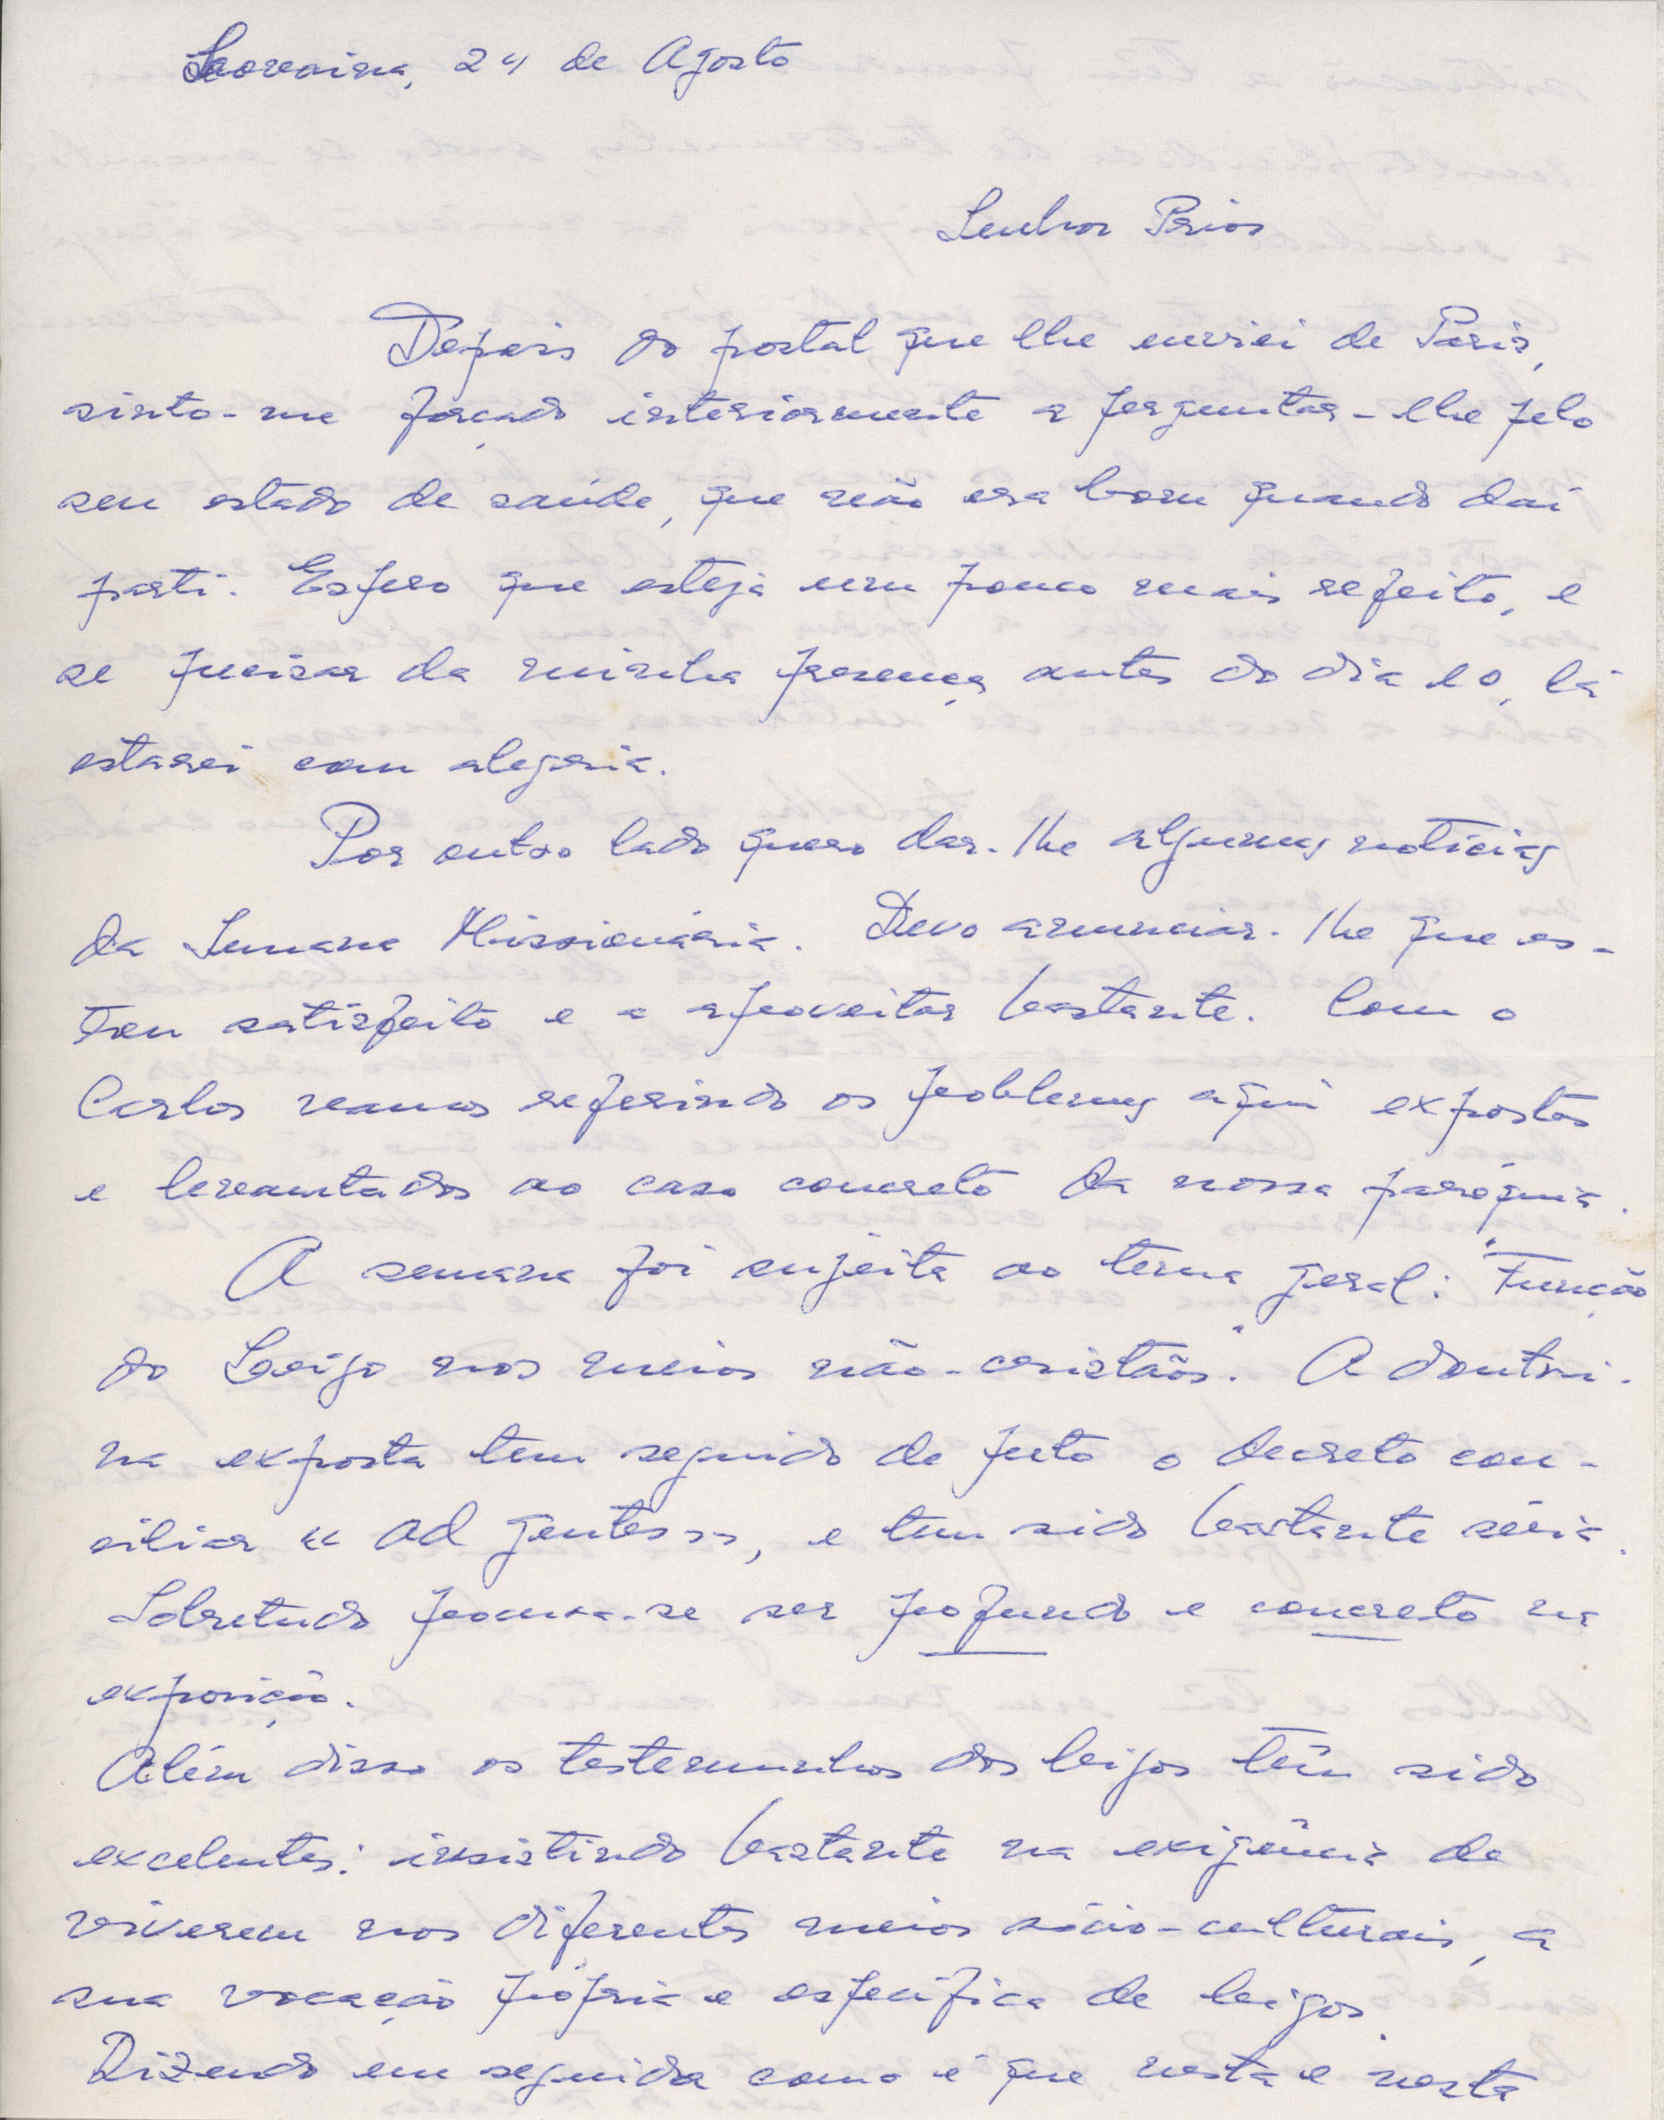 Lovaina, 24 de Agosto
Senhor Prior
Depois do postal que lhe enviei de Paris,
sinto-me forçado interiormente a perguntar-lhe pelo
seu estado de saúde, que não era bom quando daí
parti. Espero que esteja um pouco mais refeito, e
se precisar da minha presença antes do dia 10, lá
estarei com alegria.
Por outro lado quero dar-lhe algumas notícias
da Semana Missionária. Devo anunciar-lhe que es-
tou satisfeito e a aproveitar bastante. Com o
Carlos vamos referindo os problemas aqui expostos
e levantados ao caso concreto da nossa paróquia.
A semana foi sujeita ao tema geral: "Função
do Leigo nos meios não-cristãos". A doutri-
na exposta tem seguido de perto o decreto con-
ciliar «Ad gentes», e tem sido bastante séria.
Sobretudo procura-se ser profundo e concreto na
exposição.
Além disso os testemunhos dos leigos têm sido
excelentes: insistindo bastante na exigência de
viverem nos diferentes meios sócio-culturais, a
sua vocação própria e específica de leigos.
Dizendo em seguida como é que nesta e nesta